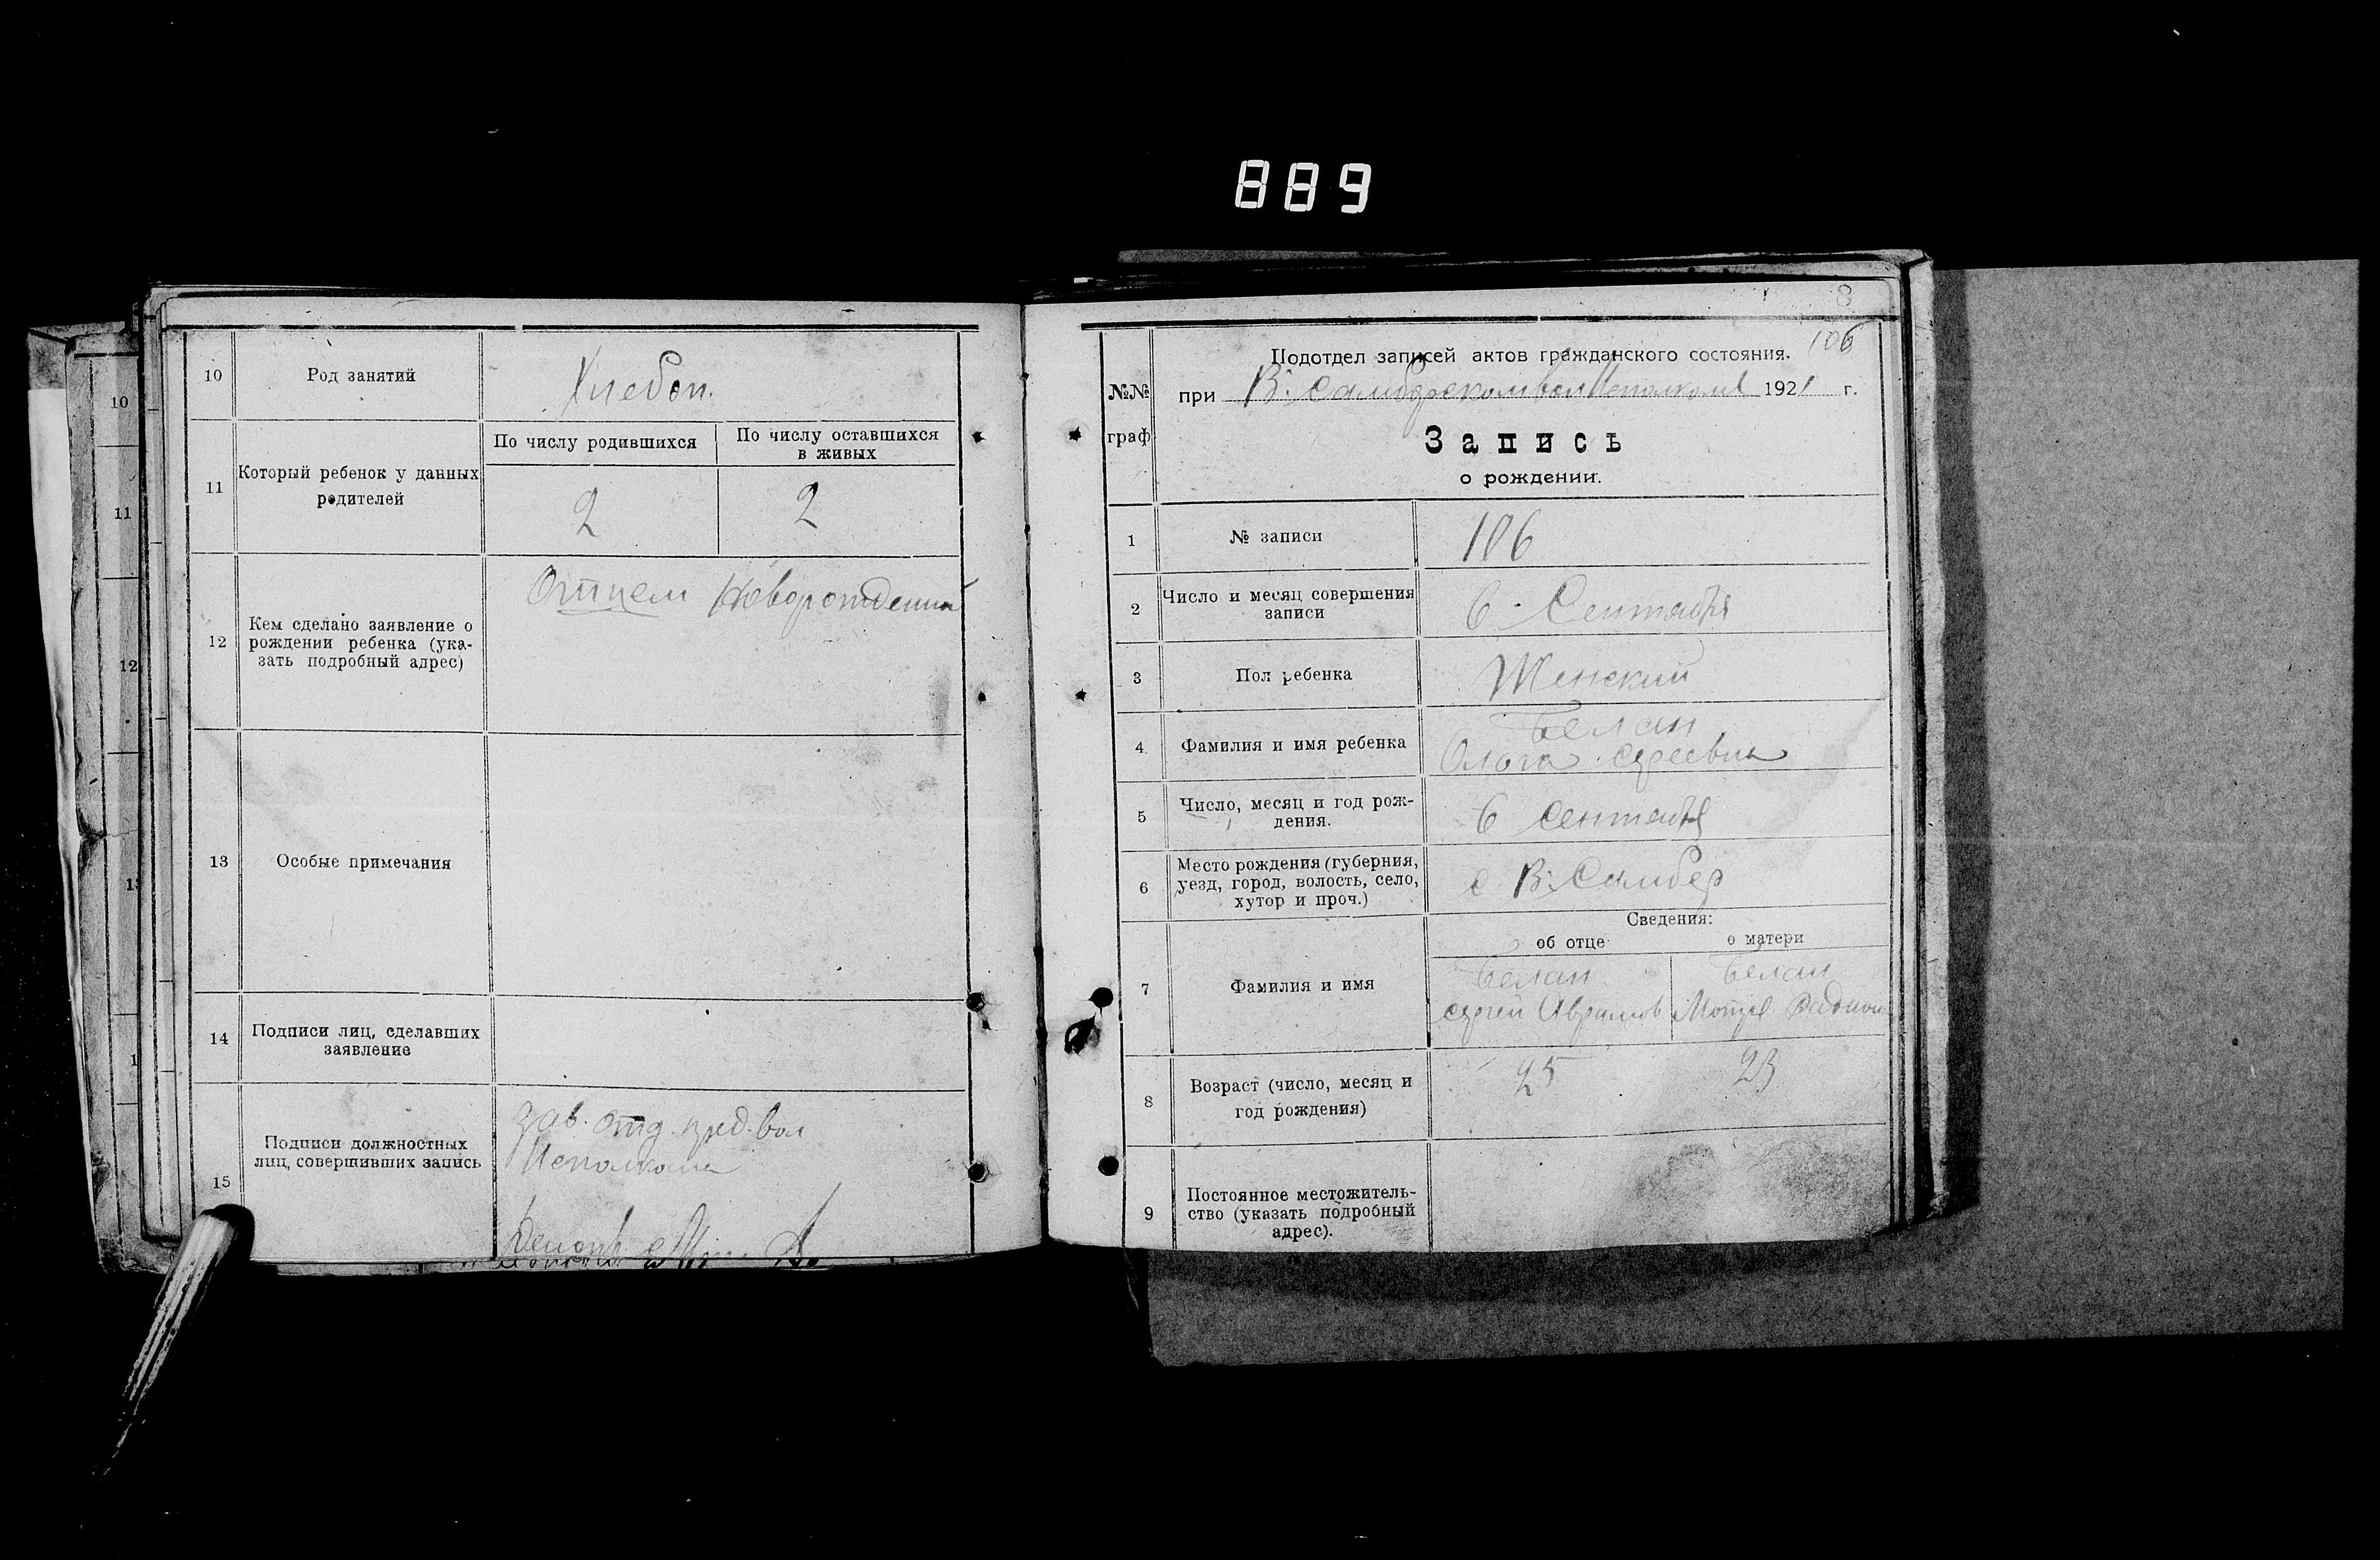 889
10
Род занятий
Хлебоп.
11
Который ребенок у данных
родителей
По числу родившихся
По числу оставшихся
в живых
2
2
12
Кем сделано заявление о
рождении ребенка (ука-
зать подробный адрес)
Отцем Новорожденни
13
Особые примечания
14
Подписи лиц, сделавших
заявление
15
Подписи должностных
лиц, совершивших запись
Зав. отд. пред. вол
Исполкома
8
106
№№
граф
Подотдел записей актов гражданского состояния.
при В. Самбор 1921 г.
Запись
о рождении.
1
№ записи
106
2
Число и месяц совершения
записи
6 Сентября
3
Пол ребенка
Женский
4
Фамилия и имя ребенка
Белан
Ольга Сергеевна
5
Число, месяц и год рож-
дения.
6 Сентября
6
Место рождения (губерния,
уезд, город, волость, село,
хутор и проч.)
с. В. Самбор
Сведения:
об отце
о матери
7
Фамилия и имя
Белан
Сергей Аврамов
Белан
Мотря
8
Возраст (число, месяц и
год рождения)
25
23
9
Постоянное местожитель-
ство (указать подробный
адрес).
10
11
12